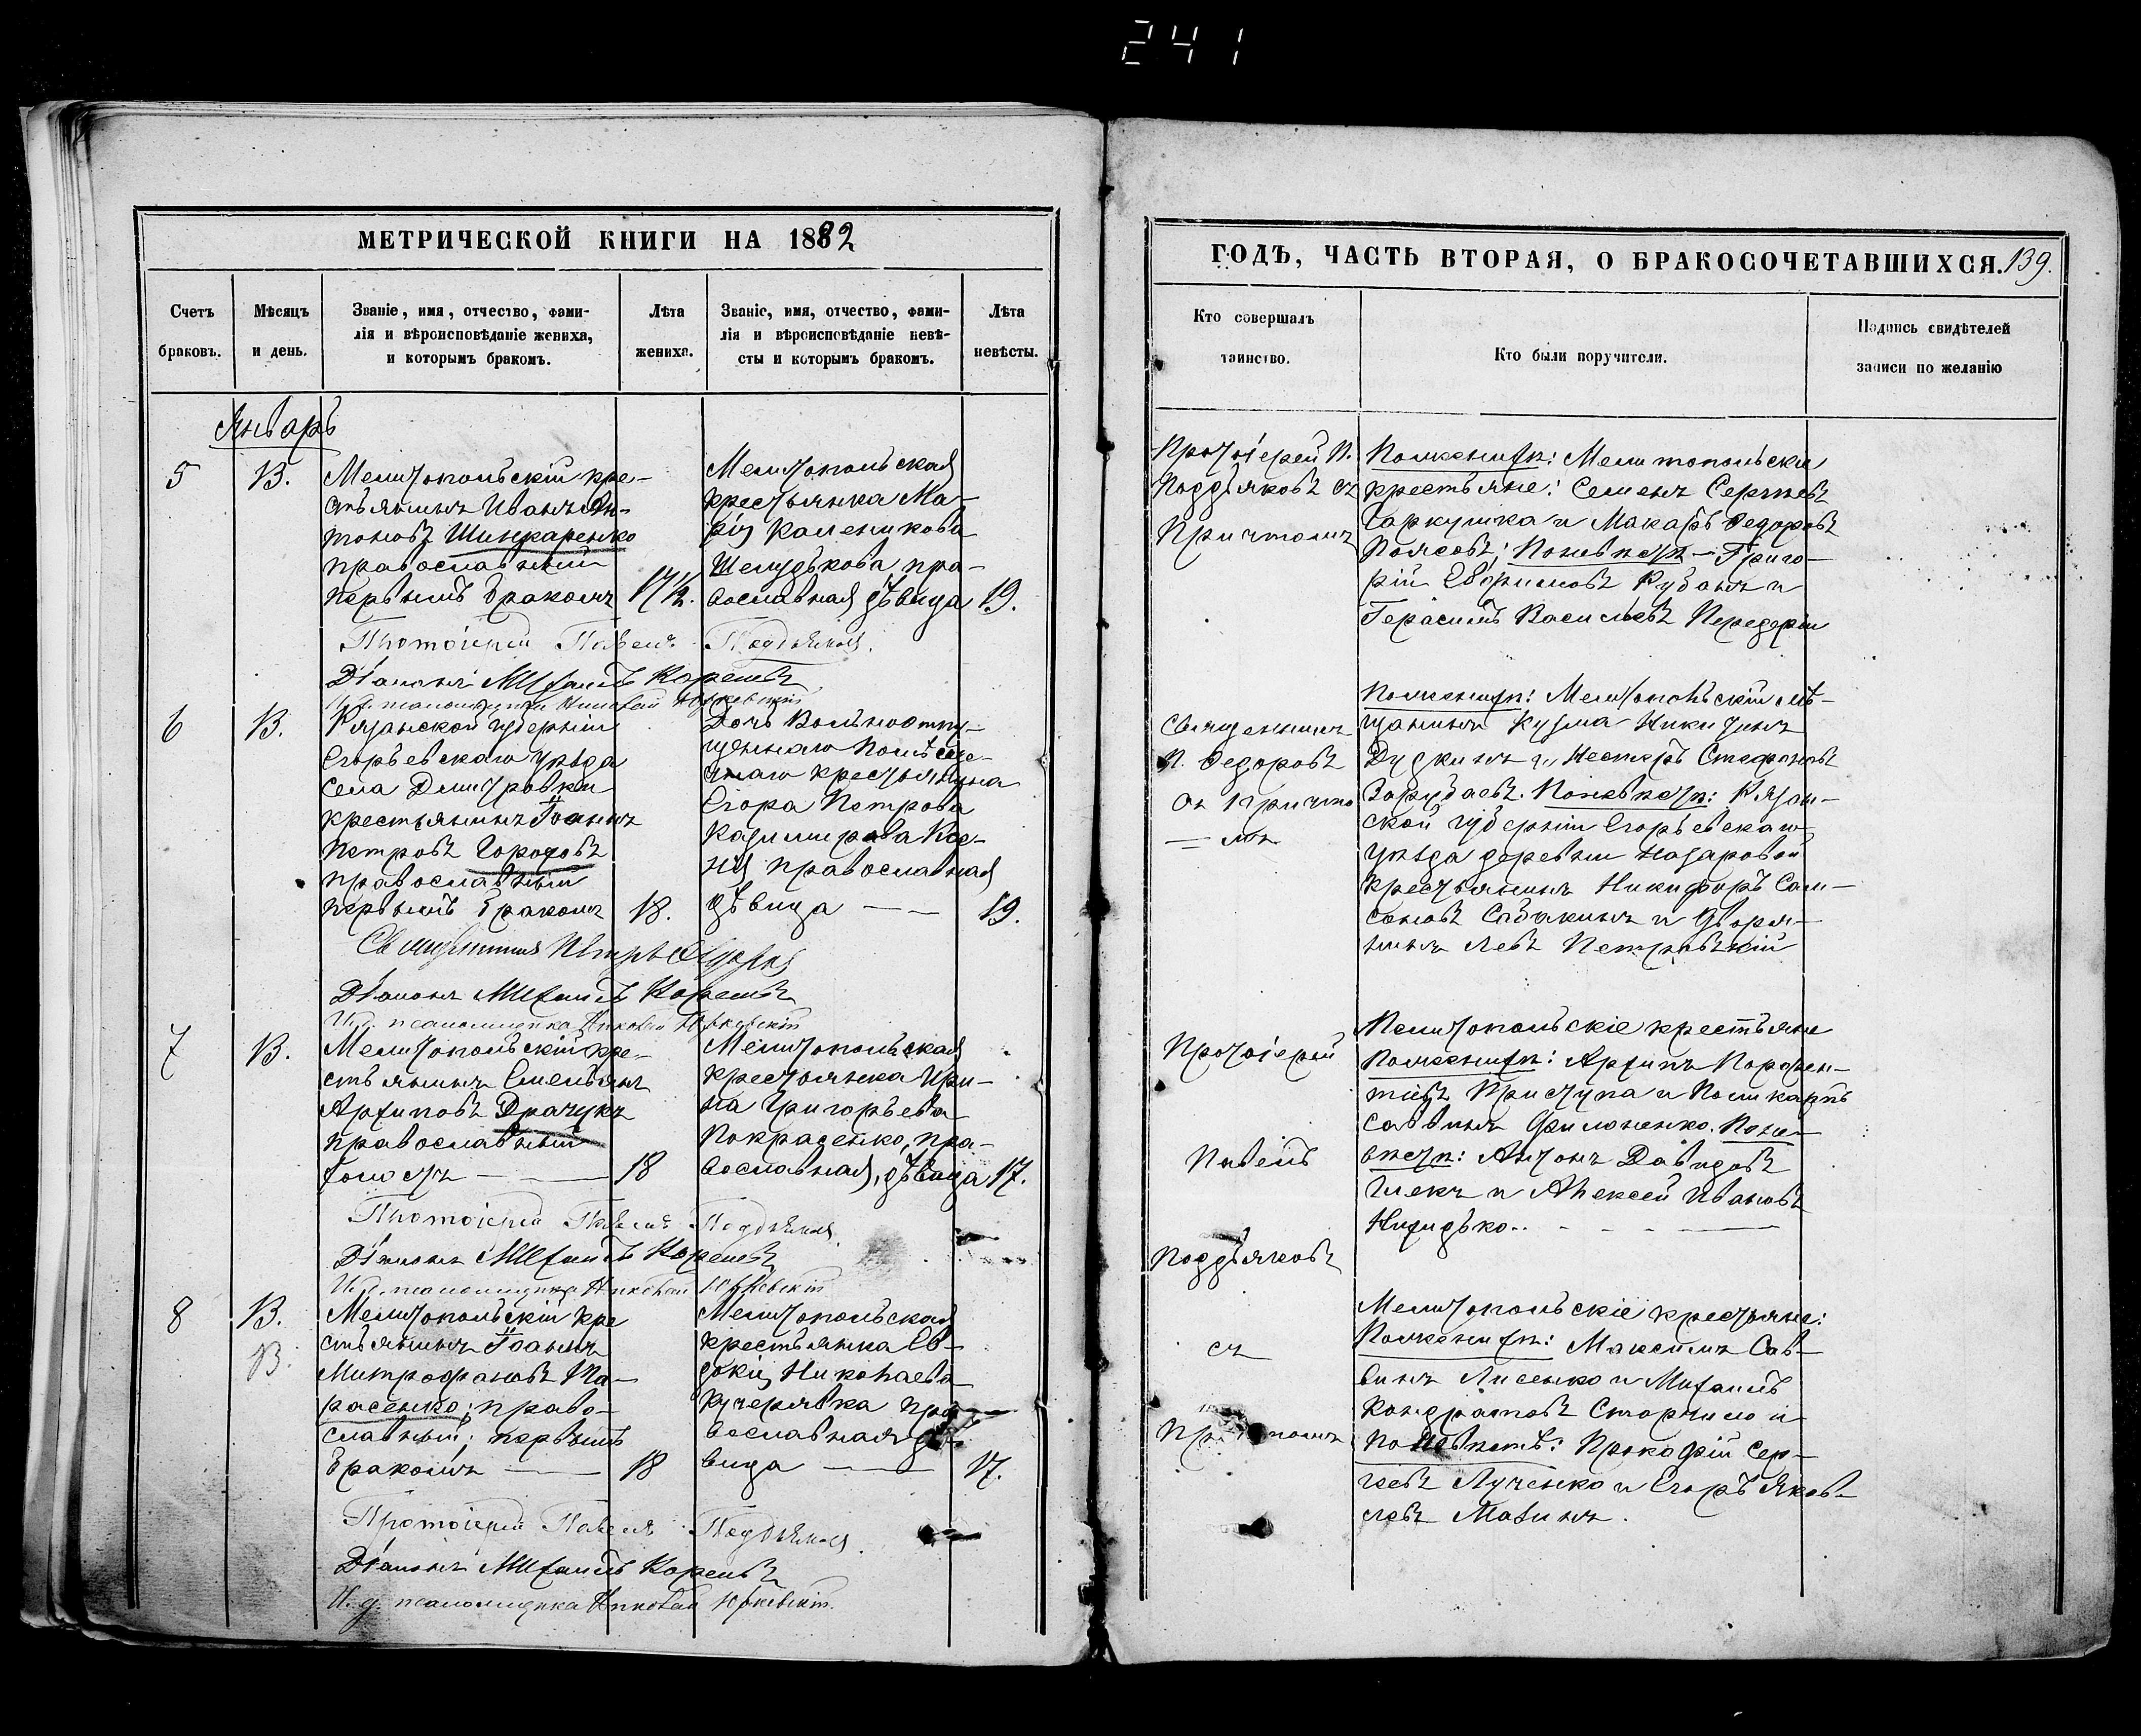 241
МЕТРИЧЕСКОЙ КНИГИ НА 1882
Счетъ браковъ.
Мѣсяцъ и день.
Званіе, имя, отчество, фами-
лія и вѣроисповѣданіе жениха,
и которымъ бракомъ.
Лѣта жениха.
Званіе, имя, отчество, фами-
лія и вѣроисповѣданіе невѣ-
сты и которымъ бракомъ.
Лѣта невѣсты.
Январь
5
13.
Мелитопольскій кре-
стьянинъ Иванъ Ан-
тоновъ Шинкаренко
православный
первымъ бракомъ
17½.
Мелитопольская
крестьянка Ма-
рія Каленикова
Шелудькова пра-
вославная дѣвица
19.
Протоіерей Павелъ Поддьяковъ.
Діаконъ Михаилъ Корешевъ
И. д. псаломщика Николай Юркевскій
6
13.
Рязанской губерніи
Егорьевскаго уѣзда
села Дмитровки
крестьянинъ Іоаннъ
Петровъ Городовъ
православный
первымъ бракомъ
18.
Дочь вольноотпу-
щеннаго помѣще-
чьяго крестьянина
Егора Петрова
Кадимирова Ксе-
нія православная
дѣвица
19.
Священникъ Петръ Ѳедоровъ
Діаконъ Михаилъ Корешевъ
И. д. псаломщика Николай Юркевскій
7
13.
Мелитопольскій кре-
стьянинъ Емельянъ
Архиповъ Драчукъ
православный
холостъ
18
Мелитопольская
крестьянка Ири-
на Григорьева
Покрасенко, пра-
вославная, дѣвица
17.
Протоіерей Павелъ Поддьяковъ.
Діаконъ Михаилъ Корешевъ
И. д. псаломщика Николай Юркевскій
8
13.
13.
Мелитопольскій кре
стьянинъ Іоаннъ
Митрофановъ Та-
расенко; право-
славный; первымъ
бракомъ
18
Мелитопольская
крестьянка Ев-
докія Николаева
Кучерявка пра
вославная дѣ
вица
17.
Протоіерей Павелъ Поддьяковъ.
Діаконъ Михаилъ Корешевъ
И. д. псаломщика Николай Юркевскій.
ГОДЪ, ЧАСТЬ ВТОРАЯ, О БРАКОСОЧЕТАВШИХСЯ.
139.
Кто совершалъ таинство.
Кто были поручители.
Подпись свидѣтелей
записи по желанію
Протоіерей П.
Поддьяковъ съ
Причтомъ
По женихѣ: Мелитопольскіе
крестьяне: Семенъ Сергѣевъ
Гаркушка и Макаръ Ѳедоровъ
Поясовъ; По невѣстѣ — Григо-
рій Ефимовъ Кубанъ и
Герасимъ Васильевъ Передерій
Священникъ
П. Ѳедоровъ
съ причто
— мъ
По женихѣ: Мелитопольскій мѣ-
щанинъ Кузма Никитинъ
Дудкинъ и Несторъ Стефановъ
Зарубаевъ. По невѣстѣ: Рязан-
ской губерніи Егорьевскаго
уѣзда деревни Назаровой
крестьянинъ Никифоръ Сам-
соновъ Сабакинъ и дворя-
нинъ Левъ Петровскій
Протоіерей
Павелъ
Поддьяковъ
съ
Мелитопольскіе крестьяне
По женихѣ: Архипъ Порфен-
тіевъ Трисупа и Поликарпъ
Саввинъ Филоненко. По не-
вѣстѣ: Антонъ Давидовъ
Гмекъ и Алексей Ивановъ
Причтомъ
Мелитопольскіе крестьяне:
По женихѣ: Максимъ Сав-
винъ Лисенко и Михаилъ
Кондратовъ Сторчило и
по невѣстѣ: Прокофій Сер-
гѣевъ Лученко и Егоръ Яков-
левъ Махинъ.